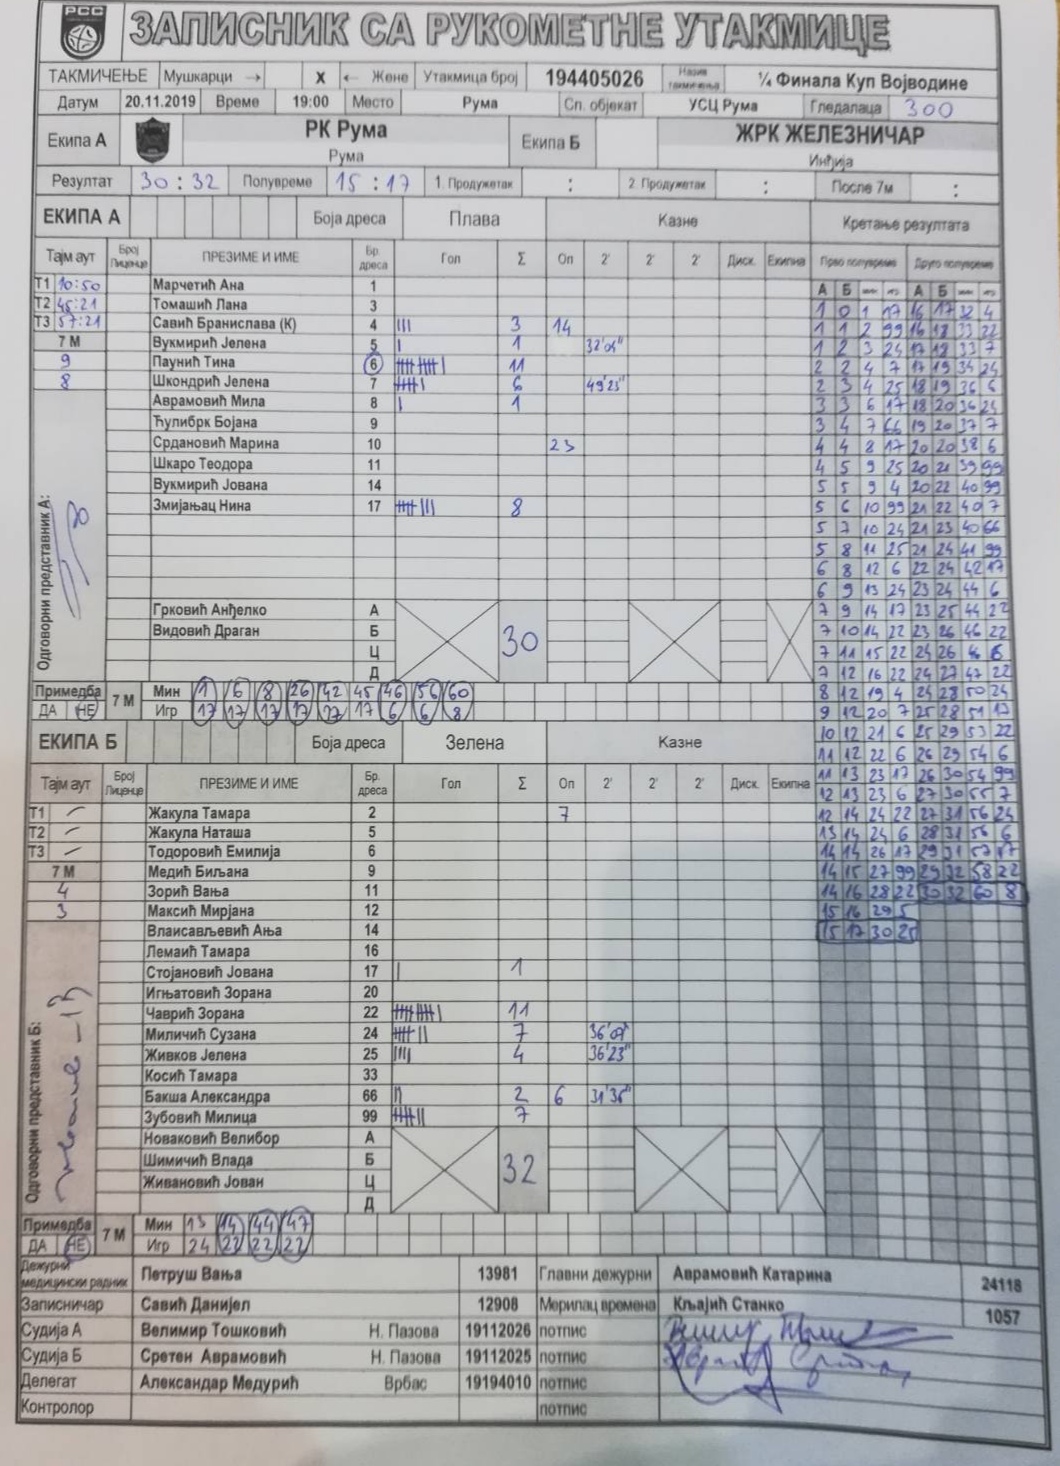 РСС
ЗАПИСНИК СА РУКОМЕТНЕ УТАКМИЦЕ
ТАКМИЧЕЊЕ Мушкарци → X ← Жене Утакмица број 194405026 Назив такмичења ¼ Финала Куп Војводине
Датум 20.11.2019 Време 19:00 Место Рума Сп. објекат УСЦ Рума Гледалаца 300
Екипа А РК Рума Екипа Б ЖРК ЖЕЛЕЗНИЧАР
Рума Инђија
Резултат 30 : 32 Полувреме 15 : 17 1. Продужетак : 2. Продужетак : После 7м :
ЕКИПА А Боја дреса Плава Казне Кретање резултата
Тајм аут Број Лиценце ПРЕЗИМЕ И ИМЕ Бр. дреса Гол Σ Оп 2' 2' 2' Диск. Екипна Прво полувреме Друго полувреме
А Б мин А Б мин
T1 10:50 Марчетић Ана 1
T2 45:21 Томашић Лана 3 1 0 1 17 16 17 32 4
T3 57:21 Савић Бранислава (К) 4 III 3 14 1 1 2 99 16 18 33 22
7 М Вукмирић Јелена 5 I 1 1 2 3 24 17 18 33 7
9 Паунић Тина 6 11 2 2 4 7 17 19 34 24
8 Шкондрић Јелена 7 6 49'25" 2 3 4 25 18 19 36 6
Аврамовић Мила 8 I 1 3 3 6 17 18 20 36 24
Ћулибрк Бојана 9 3 4 7 66 19 20 37 7
Срдановић Марина 10 23 4 4 8 17 20 20 38 6
Шкаро Теодора 11 4 5 9 25 20 21 39 99
Вукмирић Јована 14 5 5 9 4 20 22 40 99
Змијањац Нина 17 8 5 6 10 99 21 22 40 7
5 7 10 24 21 23 40 66
5 8 11 25 21 24 41 99
6 8 12 6 22 24 42 17
6 9 13 24 23 24 44 6
Одговорни представник А:
Грковић Анђелко А 30 7 9 14 17 23 25 44 22
Видовић Драган Б 7 10 14 22 23 26 46 22
Ц 7 11 15 22 24 26 46 6
Д 7 12 16 22 24 27 47 22
Примедба 7 М Мин 1 6 8 26 42 45 46 56 60 8 12 19 4 24 28 50 24
ДА НЕ Игр 17 17 17 17 17 17 6 6 8 9 12 20 7 25 28 51 17
ЕКИПА Б Боја дреса Зелена Казне 10 12 21 6 25 29 53 22
11 12 22 6 26 29 54 6
Тајм аут Број Лиценце ПРЕЗИМЕ И ИМЕ Бр. дреса Гол Σ Оп 2' 2' 2' Диск. Екипна 11 13 23 17 26 30 54 99
12 13 23 6 27 30 55 7
T1 Жакула Тамара 2 7 12 14 24 22 27 31 56 24
T2 Жакула Наташа 5 13 14 24 6 28 31 56 6
T3 Тодоровић Емилија 6 14 14 26 17 29 31 57 17
7 М Медић Биљана 9 14 15 27 99 29 32 58 22
4 Зорић Вања 11 14 16 28 22 30 32 60 8
3 Максић Мирјана 12 15 16 29 5
Влаисављевић Ања 14 15 17 30 25
Лемаић Тамара 16
Стојановић Јована 17 I 1
Игњатовић Зорана 20
Чаврић Зорана 22 11
Миличић Сузана 24 7
Живков Јелена 25 IIII 4 36'23"
Косић Тамара 33
Бакша Александра 66 II 2 6
Зубовић Милица 99 7
Одговорни представник Б:
Новаковић Велибор А 32
Шимичић Влада Б
Живановић Јован Ц
Д
Примедба 7 М Мин 13 14 44 47
ДА НЕ Игр 24 22 22 22
Дежурни медицински радник Петруш Вања 13981 Главни дежурни Аврамовић Катарина 24118
Записничар Савић Данијел 12908 Мерилац времена Кљајић Станко 1057
Судија А Велимир Тошковић Н. Пазова 19112026 потпис
Судија Б Сретен Аврамовић Н. Пазова 19112025 потпис
Делегат Александар Медурић Врбас 19194010 потпис
Контролор потпис